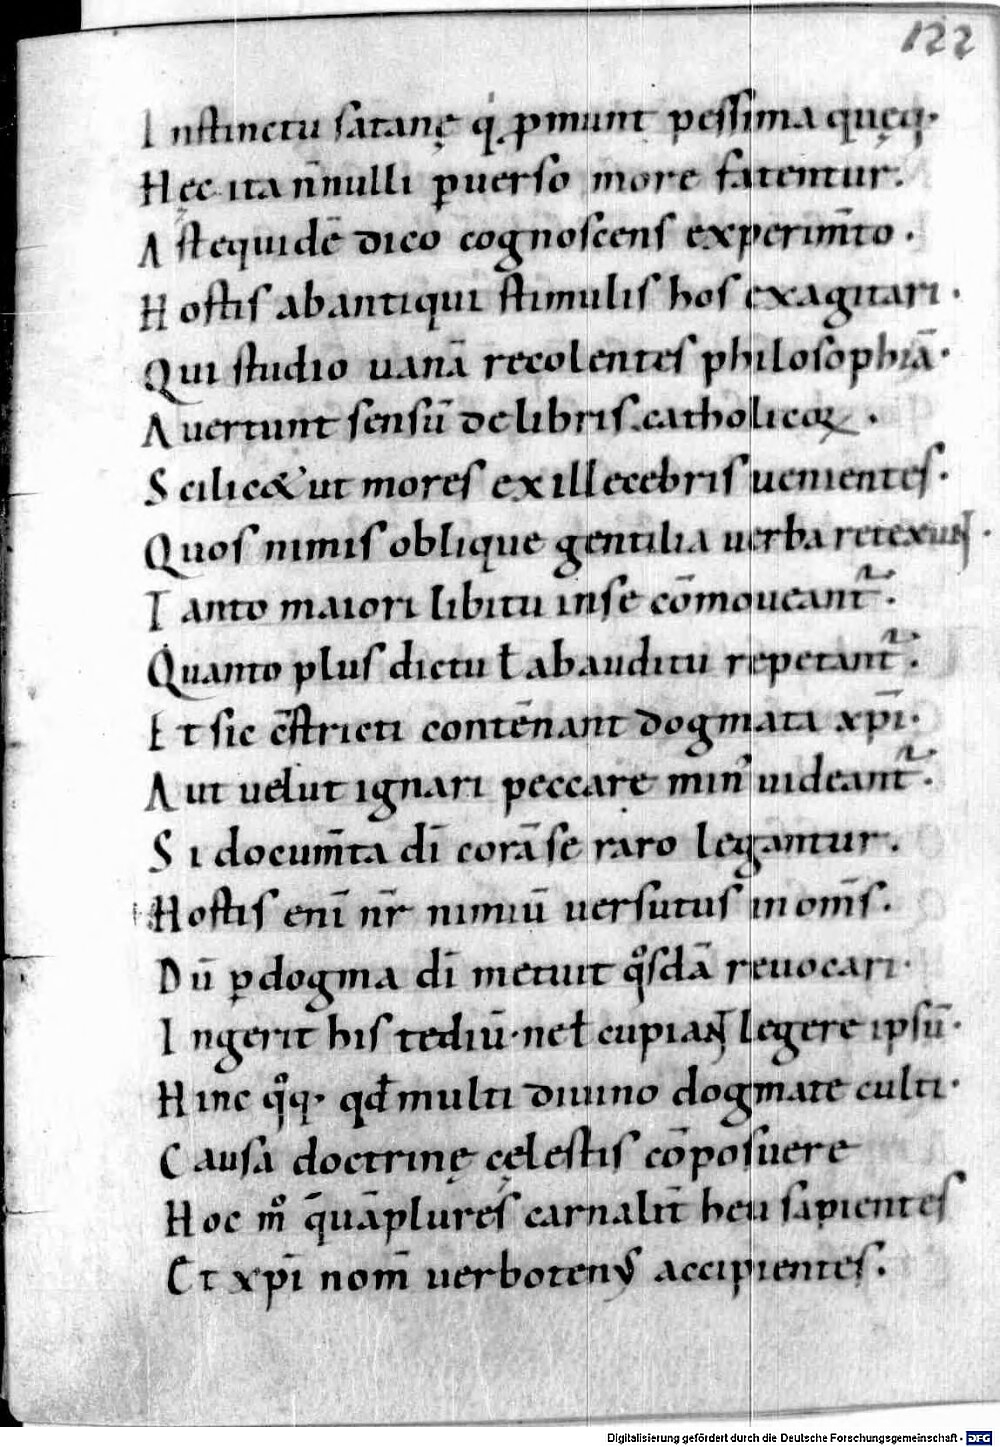 122
Instinctu satanę qi ꝓmunt pessima quęq·
Hęc ita n̄nulli ꝑuerso more fatentur.
Ast equidē dico cognoscens experim̄to .
Hostis ab antiqui stimulis hos exagitari .
Qui studio uanā recolentes philosophiā·
Auertunt sensū de libris catholicoꝝ .
Scilic& ut mores ex illecebris uenientes.
Quos nimis oblique gentilia uerba retexunt .
Tanto maiori libitu inse cōmoueant᷑.
Quanto plus dictu ł abauditu repetant᷑.
Et sic c̄stricti contēnant dogmata xp̄i·
Aut uelut ignari peccare min᷒ uideant᷑.
Si docum̄ta dī corā se raro legantur.
Hostis enī nr̄ nimiū uersutus in om̄s.
Dū ꝑ dogma dī metuit qͦsdā reuocari·
Ingerit his tediū· neł cupiant legere ipsū·
Hinc qͦq· qđ multi diuino dogmate culti·
Causa doctrinę cęlestis cōposuere
Hoc mͦ quāplures carnalit̄ heu sapientes
Et xp̄i nom̄ uerbotenus accipientes.
Digitalisierung gefördert durch die Deutsche Forschungsgemeinschaft - DFG